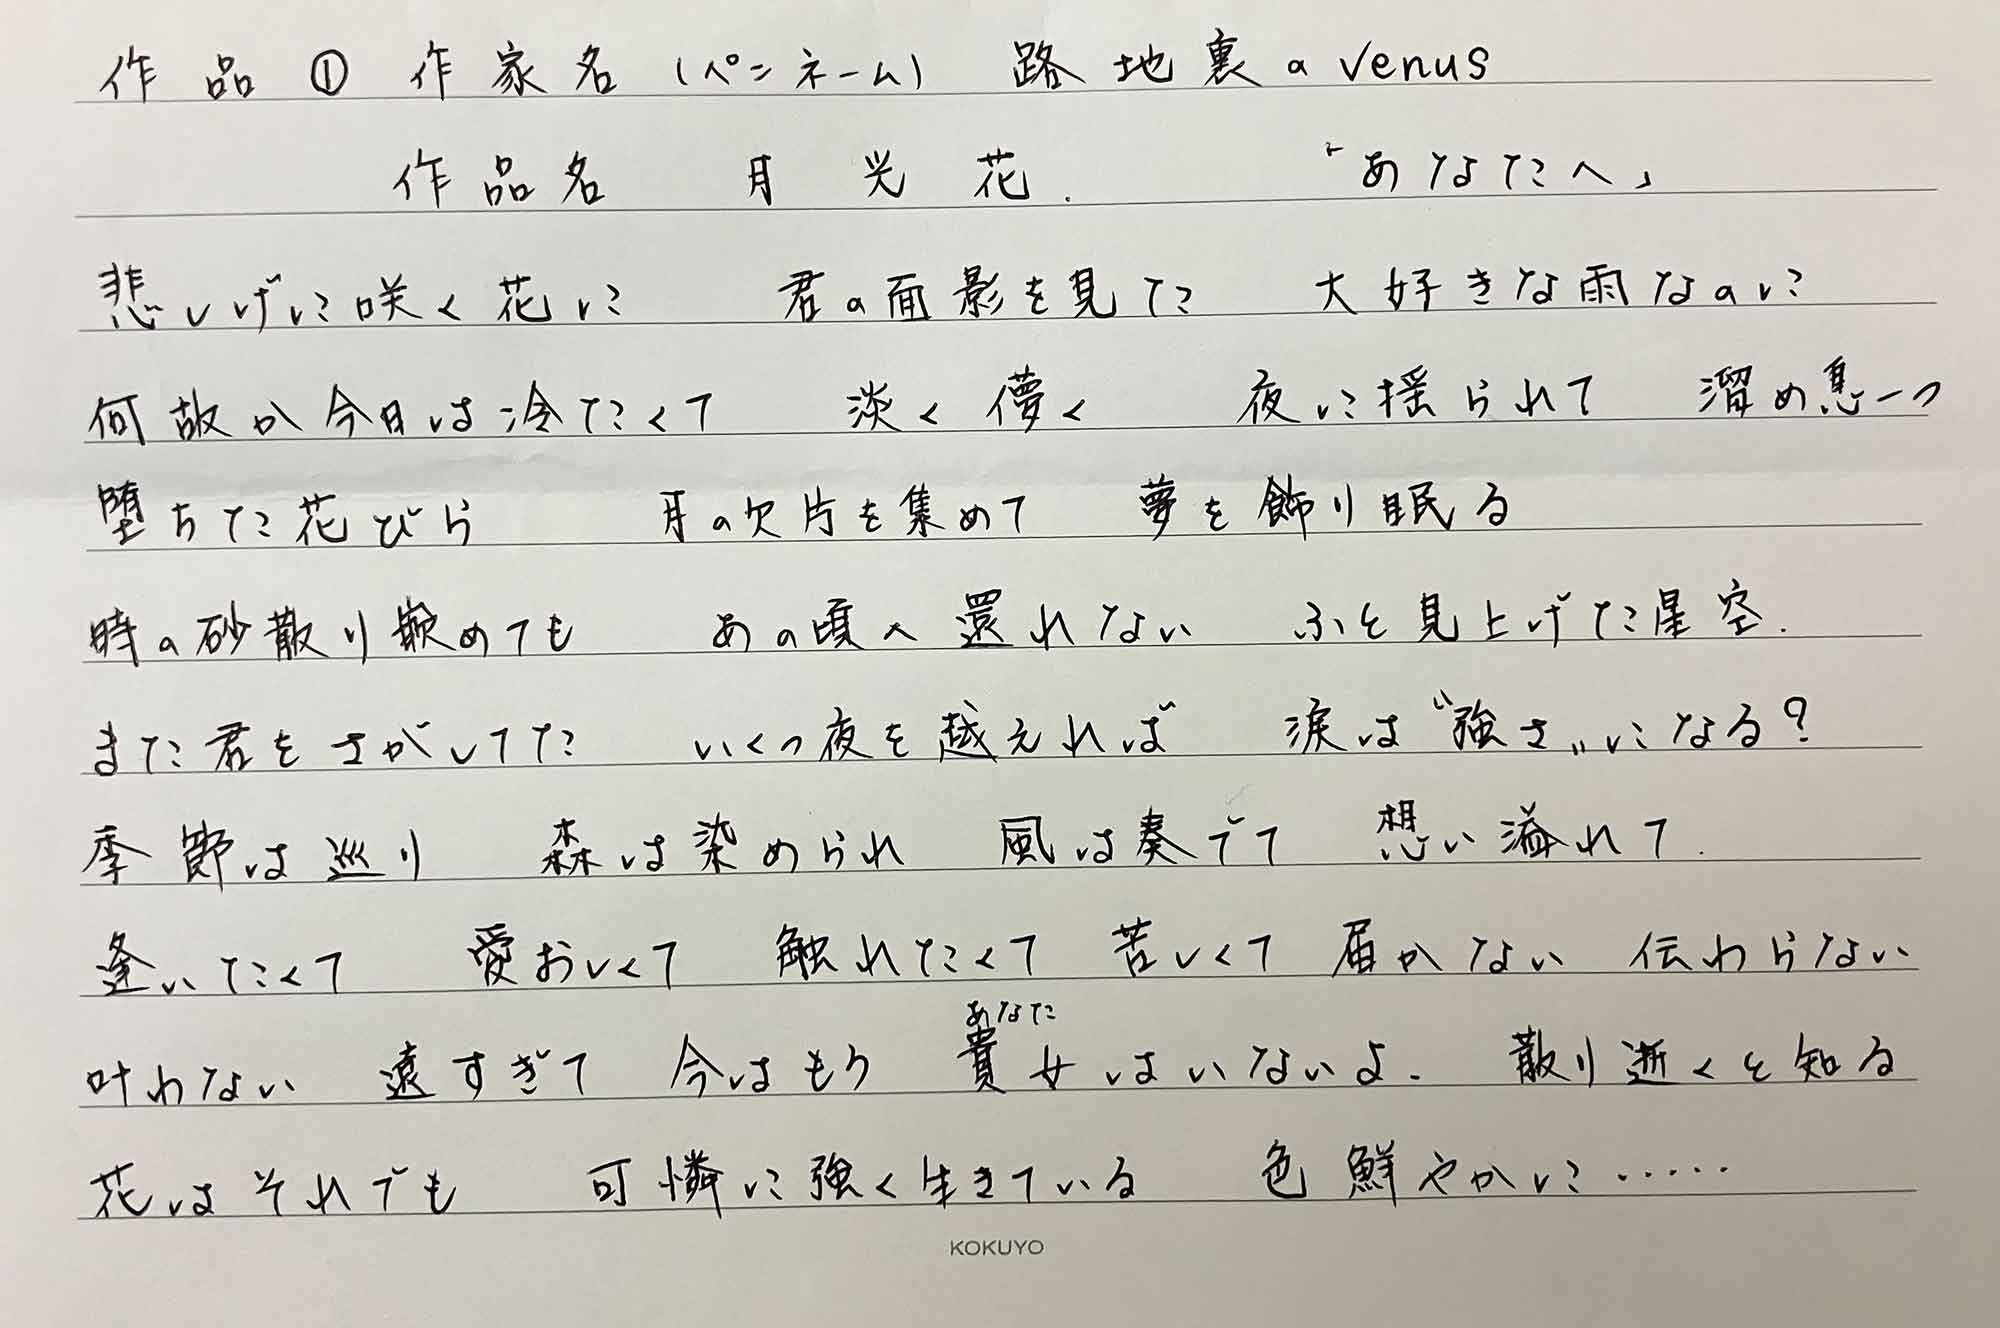 作品① 作家名(ペンネーム) 路地裏のvenus
作品名 月光花. 「あなたへ」
悲しげに咲く花に 君の面影を見た 大好きな雨なのに
何故か今日は冷たくて 淡く儚く 夜に揺られて 溜め息一つ
堕ちた花びら 月の欠片を集めて 夢を飾り眠る
時の砂散り嵌めても あの頃へ還れない ふと見上げた星空.
また君をさがしてた いくつ夜を越えれば 涙は〝強さ〟になる?
季節は巡り 森は染められ 風は奏でて 想い溢れて.
逢いたくて 愛おしくて 触れたくて 苦しくて 届かない 伝わらない
あなた
叶わない 遠すぎて 今はもう 貴女はいないよ. 散り逝くと知る
花はそれでも 可憐に強く生きている 色鮮やかに……
KOKUYO